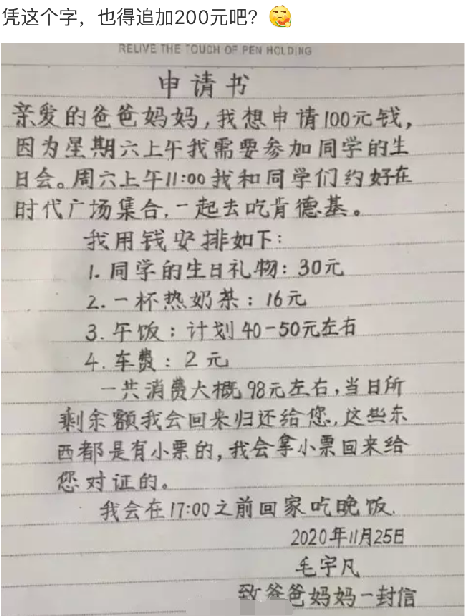 凭这个字，也得追加200元吧？
RELIVE THE TOUCH OF PEN HOLDING
申请书
亲爱的爸爸妈妈，我想申请100元钱，
因为星期六上午我需要参加同学的生
日会。周六上午11:00我和同学们约好在
时代广场集合，一起去吃肯德基。
我用钱安排如下：
1. 同学的生日礼物：30元
2. 一杯热奶茶：16元
3. 午饭：计划40-50元左右
4. 车费：2元
一共消费大概98元左右，当日所
剩余额我会回来归还给您，这些东
西都是有小票的，我会拿小票回来给
您对证的。
我会在17:00之前回家吃晚饭.
2020年11月25日
毛宇凡
致爸爸妈妈一封信